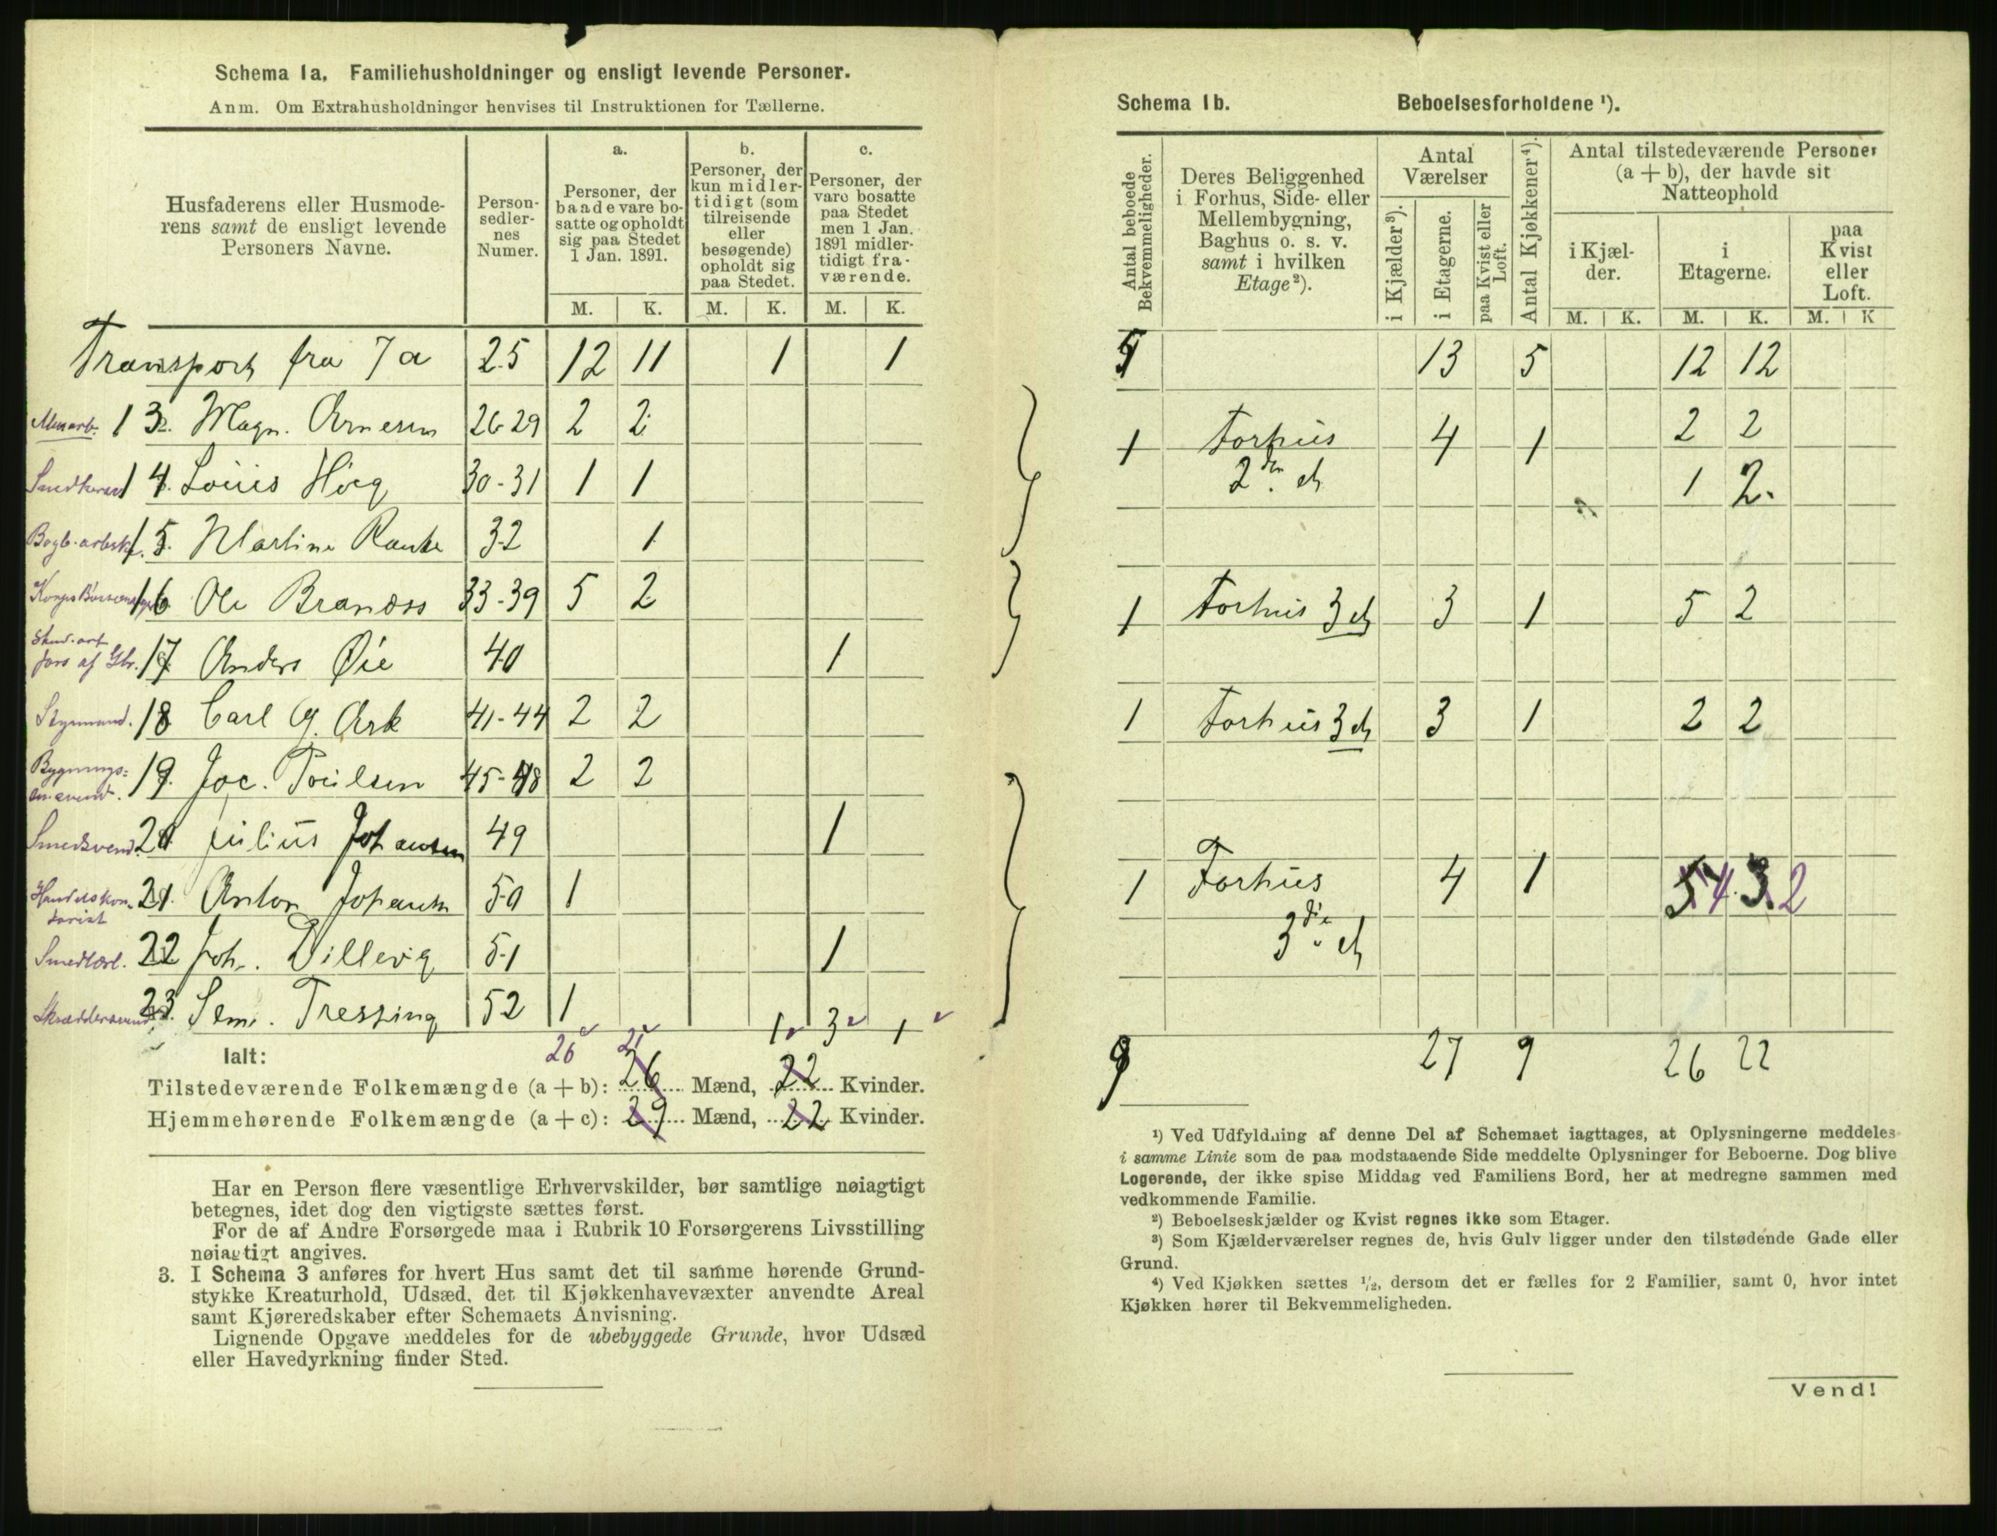 Schema 1a. Familiehusholdninger og ensligt levende Personer.
Anm. Om Extrahusholdninger henvises til Instruktionen for Tællerne.
Husfaderens eller Husmode-
rens samt de ensligt levende
Personers Navne.
Person-
sedler-
nes
Numer.
a.
Personer, der
baade vare bo-
satte og opholdt
sig paa Stedet
1 Jan. 1891.
b.
Personer, der
kun midler-
tidigt (som
tilreisende
eller
besøgende)
opholdt sig
paa Stedet.
c.
Personer, der
vare bosatte
paa Stedet
men 1 Jan.
1891 midler-
tidigt fra-
værende.
M. K. M. K. M. K.
Transport fra 7a 25 12 11 1 1
13. Magn. Arnesen 26-29 2 2
14. Louis Höeg 30-31 1 1
Bogb. arbsk. 15. Martine 32 1
16 Ole 33-39 5 2
17 Anders Öie 40 1
Styrmand. 18 Carl G. Ark 41-44 2 2
19. Joc. Poulsen 45-48 2 2
Smedsvend. 20 Julius Johansen 49 1
Handelskon-
torist 21. Anton Johansen 50 1
Smedlærl. 22 Joh. Dillevig 51 1
Skræddersvend 23. Sem. Tressing 52 1
26 21 1 3 1
Ialt:
Tilstedeværende Folkemængde (a + b): 26 Mænd, 22 Kvinder.
Hjemmehørende Folkemængde (a + c): 29 Mænd, 22 Kvinder.
Har en Person flere væsentlige Erhvervskilder, bør samtlige nøiagtigt
betegnes, idet dog den vigtigste sættes først.
For de af Andre Forsørgede maa i Rubrik 10 Forsørgerens Livsstilling
nøiagtigt angives.
3. I Schema 3 anføres for hvert Hus samt det til samme hørende Grund-
stykke Kreaturhold, Udsæd, det til Kjøkkenhavevæxter anvendte Areal
samt Kjøreredskaber efter Schemaets Anvisning.
Lignende Opgave meddeles for de ubebyggede Grunde, hvor Udsæd
eller Havedyrkning finder Sted.
Schema 1b. Beboelsesforholdene ¹).
Antal beboede
Bekvemmeligheder.
Deres Beliggenhed
i Forhus, Side- eller
Mellembygning,
Baghus o. s. v.
samt i hvilken
Etage²).
Antal
Værelser
i Kjælder³).
i Etagerne.
paa Kvist eller
Loft.
Antal Kjøkkener⁴).
Antal tilstedeværende Personer
(a + b), der havde sit
Natteophold
i Kjæl-
der.
i
Etagerne.
paa
Kvist
eller
Loft.
M. K. M. K. M. K
5 13 5 12 12
1 Forhus 4 1 2 2
2den et 1 2.
1 Forhus 3 et 3 1 5 2
1 Forhus 3 et 3 1 2 2
1 Forhus 4 1 5 4 3 2
3die et
9 27 9 26 22
¹) Ved Udfyldning af denne Del af Schemaet iagttages, at Oplysningerne meddeles
i samme Linie som de paa modstaaende Side meddelte Oplysninger for Beboerne. Dog blive
Logerende, der ikke spise Middag ved Familiens Bord, her at medregne sammen med
vedkommende Familie.
²) Beboelseskjælder og Kvist regnes ikke som Etager.
³) Som Kjælderværelser regnes de, hvis Gulv ligger under den tilstødende Gade eller
Grund.
⁴) Ved Kjøkken sættes ½, dersom det er fælles for 2 Familier, samt 0, hvor intet
Kjøkken hører til Bekvemmeligheden.
Vend!